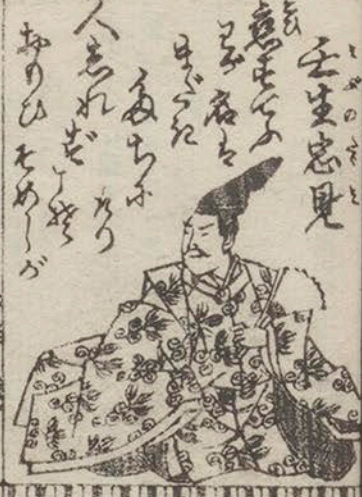 壬生忠見
みぶのたゞみ
戀すてふ
こひ
わが名は
まだき
たちに
けり
人しれず
こそ
おもひそめしが